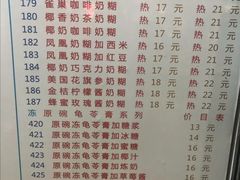 179 雀巢咖啡奶糊 热 17 元 热 21 元
180 椰香奶茶奶糊 热 17 元 热 21 元
181 椰奶咖啡奶糊 热 17 元 热 21 元
182 凤凰奶糊加西米 热 16 元 热 20 元
183 凤凰奶糊加红豆 热 16 元 热 20 元
184 椰奶巧克力奶糊 热 17 元 热 21 元
185 美国花旗参奶糊 热 18 元 热 22 元
186 金桔柠檬香奶糊 热 18 元 热 22 元
187 蜂蜜玫瑰酱奶糊 热 18 元 热 22 元
冻 原碗龟苓膏系列 价目表
420 原碗冻龟苓膏加糖浆 13 元
421 原碗冻龟苓膏加冰糖 14 元
422 原碗冻龟苓膏加蜜糖 16 元
423 原碗冻龟苓膏加椰汁 16 元
424 原碗冻龟苓膏加炼奶 16 元
425 原碗冻龟苓膏加草莓酱 16 元